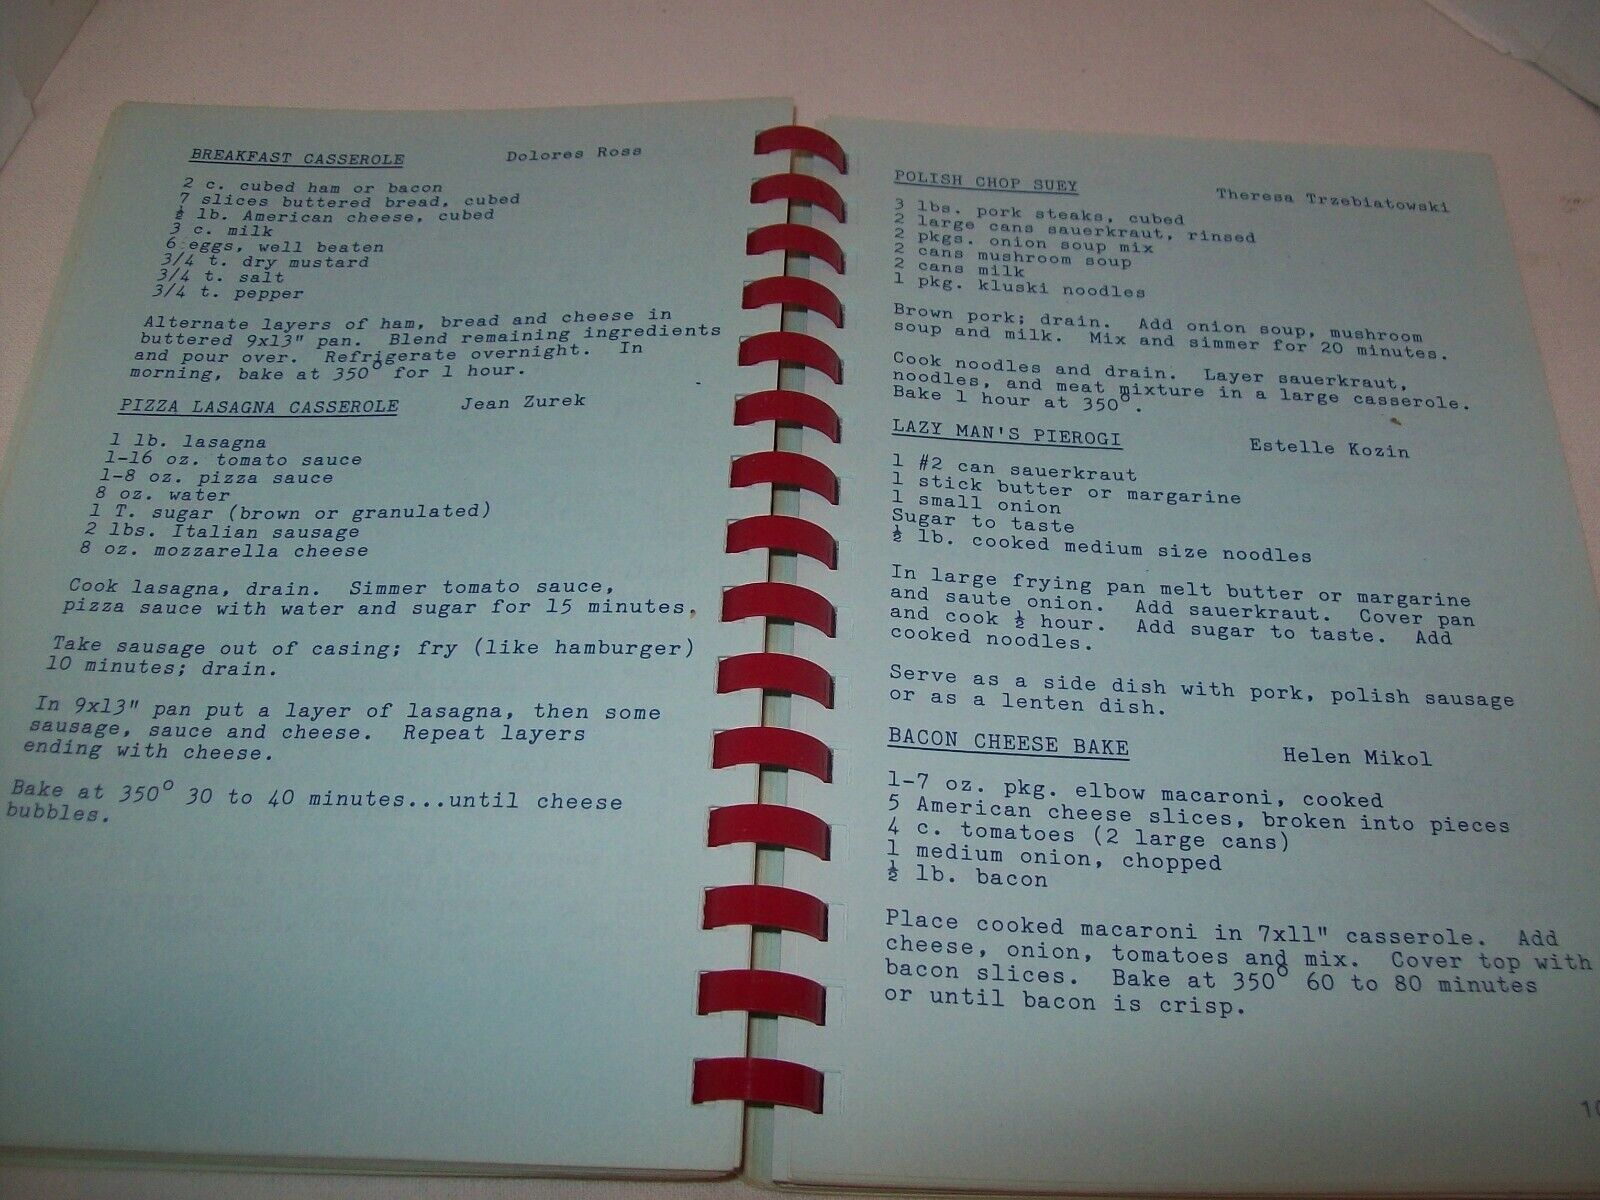 BREAKFAST CASSEROLE Dolores Ross
2 c. cubed ham or bacon
7 slices buttered bread, cubed
½ lb. American cheese, cubed
3 c. milk
6 eggs, well beaten
3/4 t. dry mustard
3/4 t. salt
3/4 t. pepper
Alternate layers of ham, bread and cheese in
buttered 9x13" pan. Blend remaining ingredients
and pour over. Refrigerate overnight. In
morning, bake at 350° for 1 hour.
PIZZA LASAGNA CASSEROLE Jean Zurek
1 lb. lasagna
1-16 oz. tomato sauce
1-8 oz. pizza sauce
8 oz. water
1 T. sugar (brown or granulated)
2 lbs. Italian sausage
8 oz. mozzarella cheese
Cook lasagna, drain. Simmer tomato sauce,
pizza sauce with water and sugar for 15 minutes.
Take sausage out of casing; fry (like hamburger)
10 minutes; drain.
In 9x13" pan put a layer of lasagna, then some
sausage, sauce and cheese. Repeat layers
ending with cheese.
Bake at 350° 30 to 40 minutes...until cheese
bubbles.
POLISH CHOP SUEY Theresa Trzebiatowski
3 lbs. pork steaks, cubed
2 large cans sauerkraut, rinsed
2 pkgs. onion soup mix
2 cans mushroom soup
2 cans milk
1 pkg. kluski noodles
Brown pork; drain. Add onion soup, mushroom
soup and milk. Mix and simmer for 20 minutes.
Cook noodles and drain. Layer sauerkraut,
noodles, and meat mixture in a large casserole.
Bake 1 hour at 350°.
LAZY MAN'S PIEROGI Estelle Kozin
1 #2 can sauerkraut
1 stick butter or margarine
1 small onion
Sugar to taste
½ lb. cooked medium size noodles
In large frying pan melt butter or margarine
and saute onion. Add sauerkraut. Cover pan
and cook ½ hour. Add sugar to taste. Add
cooked noodles.
Serve as a side dish with pork, polish sausage
or as a lenten dish.
BACON CHEESE BAKE Helen Mikol
1-7 oz. pkg. elbow macaroni, cooked
5 American cheese slices, broken into pieces
4 c. tomatoes (2 large cans)
1 medium onion, chopped
½ lb. bacon
Place cooked macaroni in 7x11" casserole. Add
cheese, onion, tomatoes and mix. Cover top with
bacon slices. Bake at 350° 60 to 80 minutes
or until bacon is crisp.